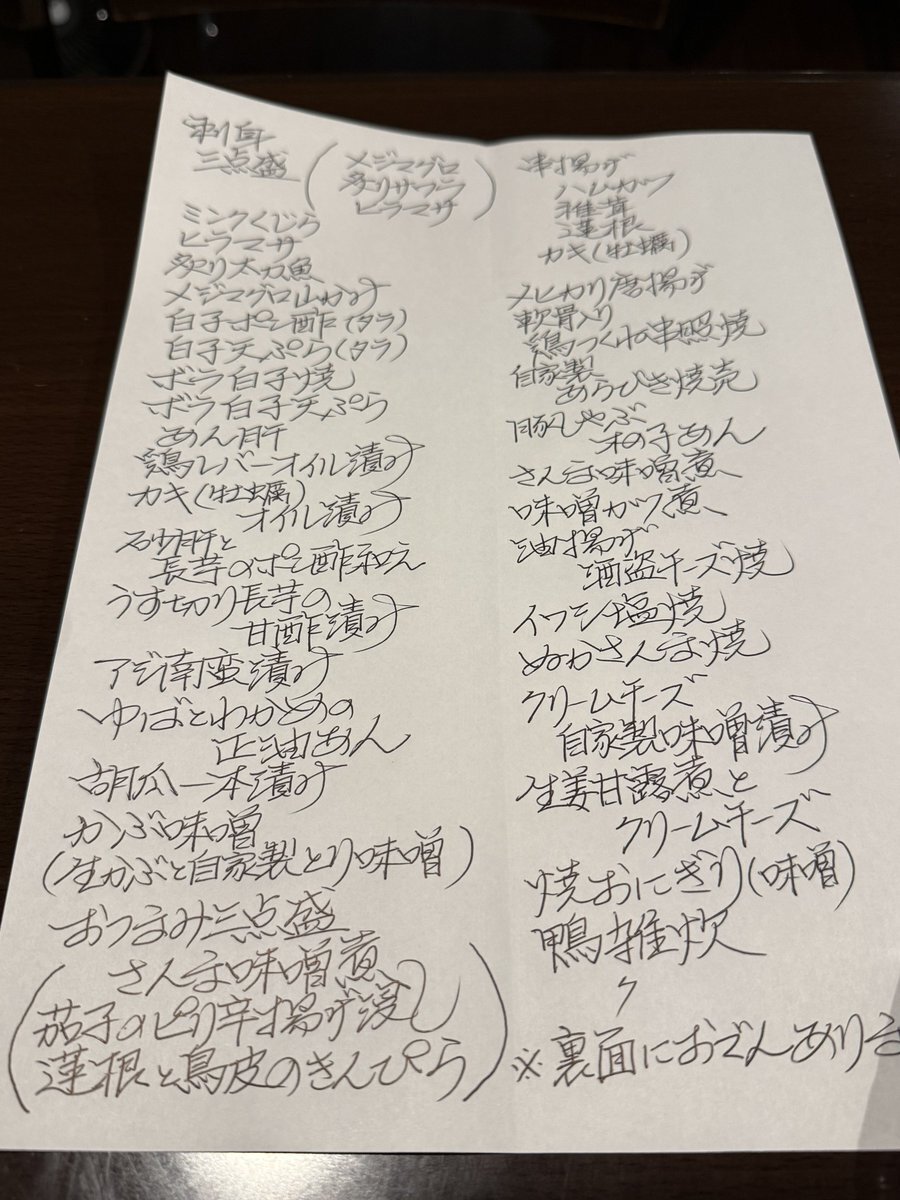 刺身
三点盛
メジマグロ
炙りサワラ
ヒラマサ
ミンクくじら
ヒラマサ
炙り太刀魚
メジマグロ山かけ
白子ポン酢(タラ)
白子天ぷら(タラ)
ボラ白子焼
ボラ白子天ぷら
あん肝
鶏レバーオイル漬け
カキ(牡蠣)
オイル漬け
砂肝と
長芋のポン酢和え
うす切り長芋の
甘酢漬け
アジ南蛮漬け
ゆばとわかめの
正油あん
胡瓜一本漬け
かぶ味噌
(生かぶと自家製とり味噌)
おつまみ三点盛
さんま味噌煮
茄子のピリ辛揚げ浸し
蓮根と鳥皮のきんぴら
串揚げ
ハムカツ
椎茸
蓮根
カキ(牡蠣)
メヒカリ唐揚げ
軟骨入り
鶏つくね串照焼
自家製
あらびき焼売
豚しゃぶ
木の子あん
さんま味噌煮
味噌カツ煮
油揚げ
酒盗チーズ焼
イワシ塩焼
ぬかさんま焼
クリームチーズ
自家製味噌漬け
生姜甘露煮と
クリームチーズ
焼おにぎり(味噌)
鴨雑炊
※裏面におでんあり